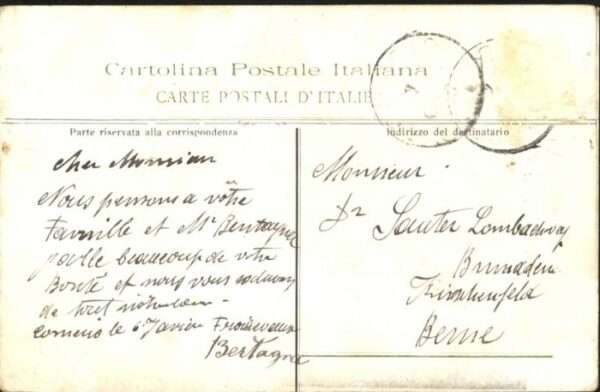 Cartolina Postale Italiana
CARTE POSTALE D'ITALIE
Parte riservata alla corrispondenza
Indirizzo del destinatario
Cher Monsieur
Nous pensons a vôtre
famille et Mr Bertagna
parle beaucoup de votre
Bonté et nous vous
de tout
le 6 Janvier
Bertagna
Monsieur
Dr Sauter
Kirchenfeld
Berne